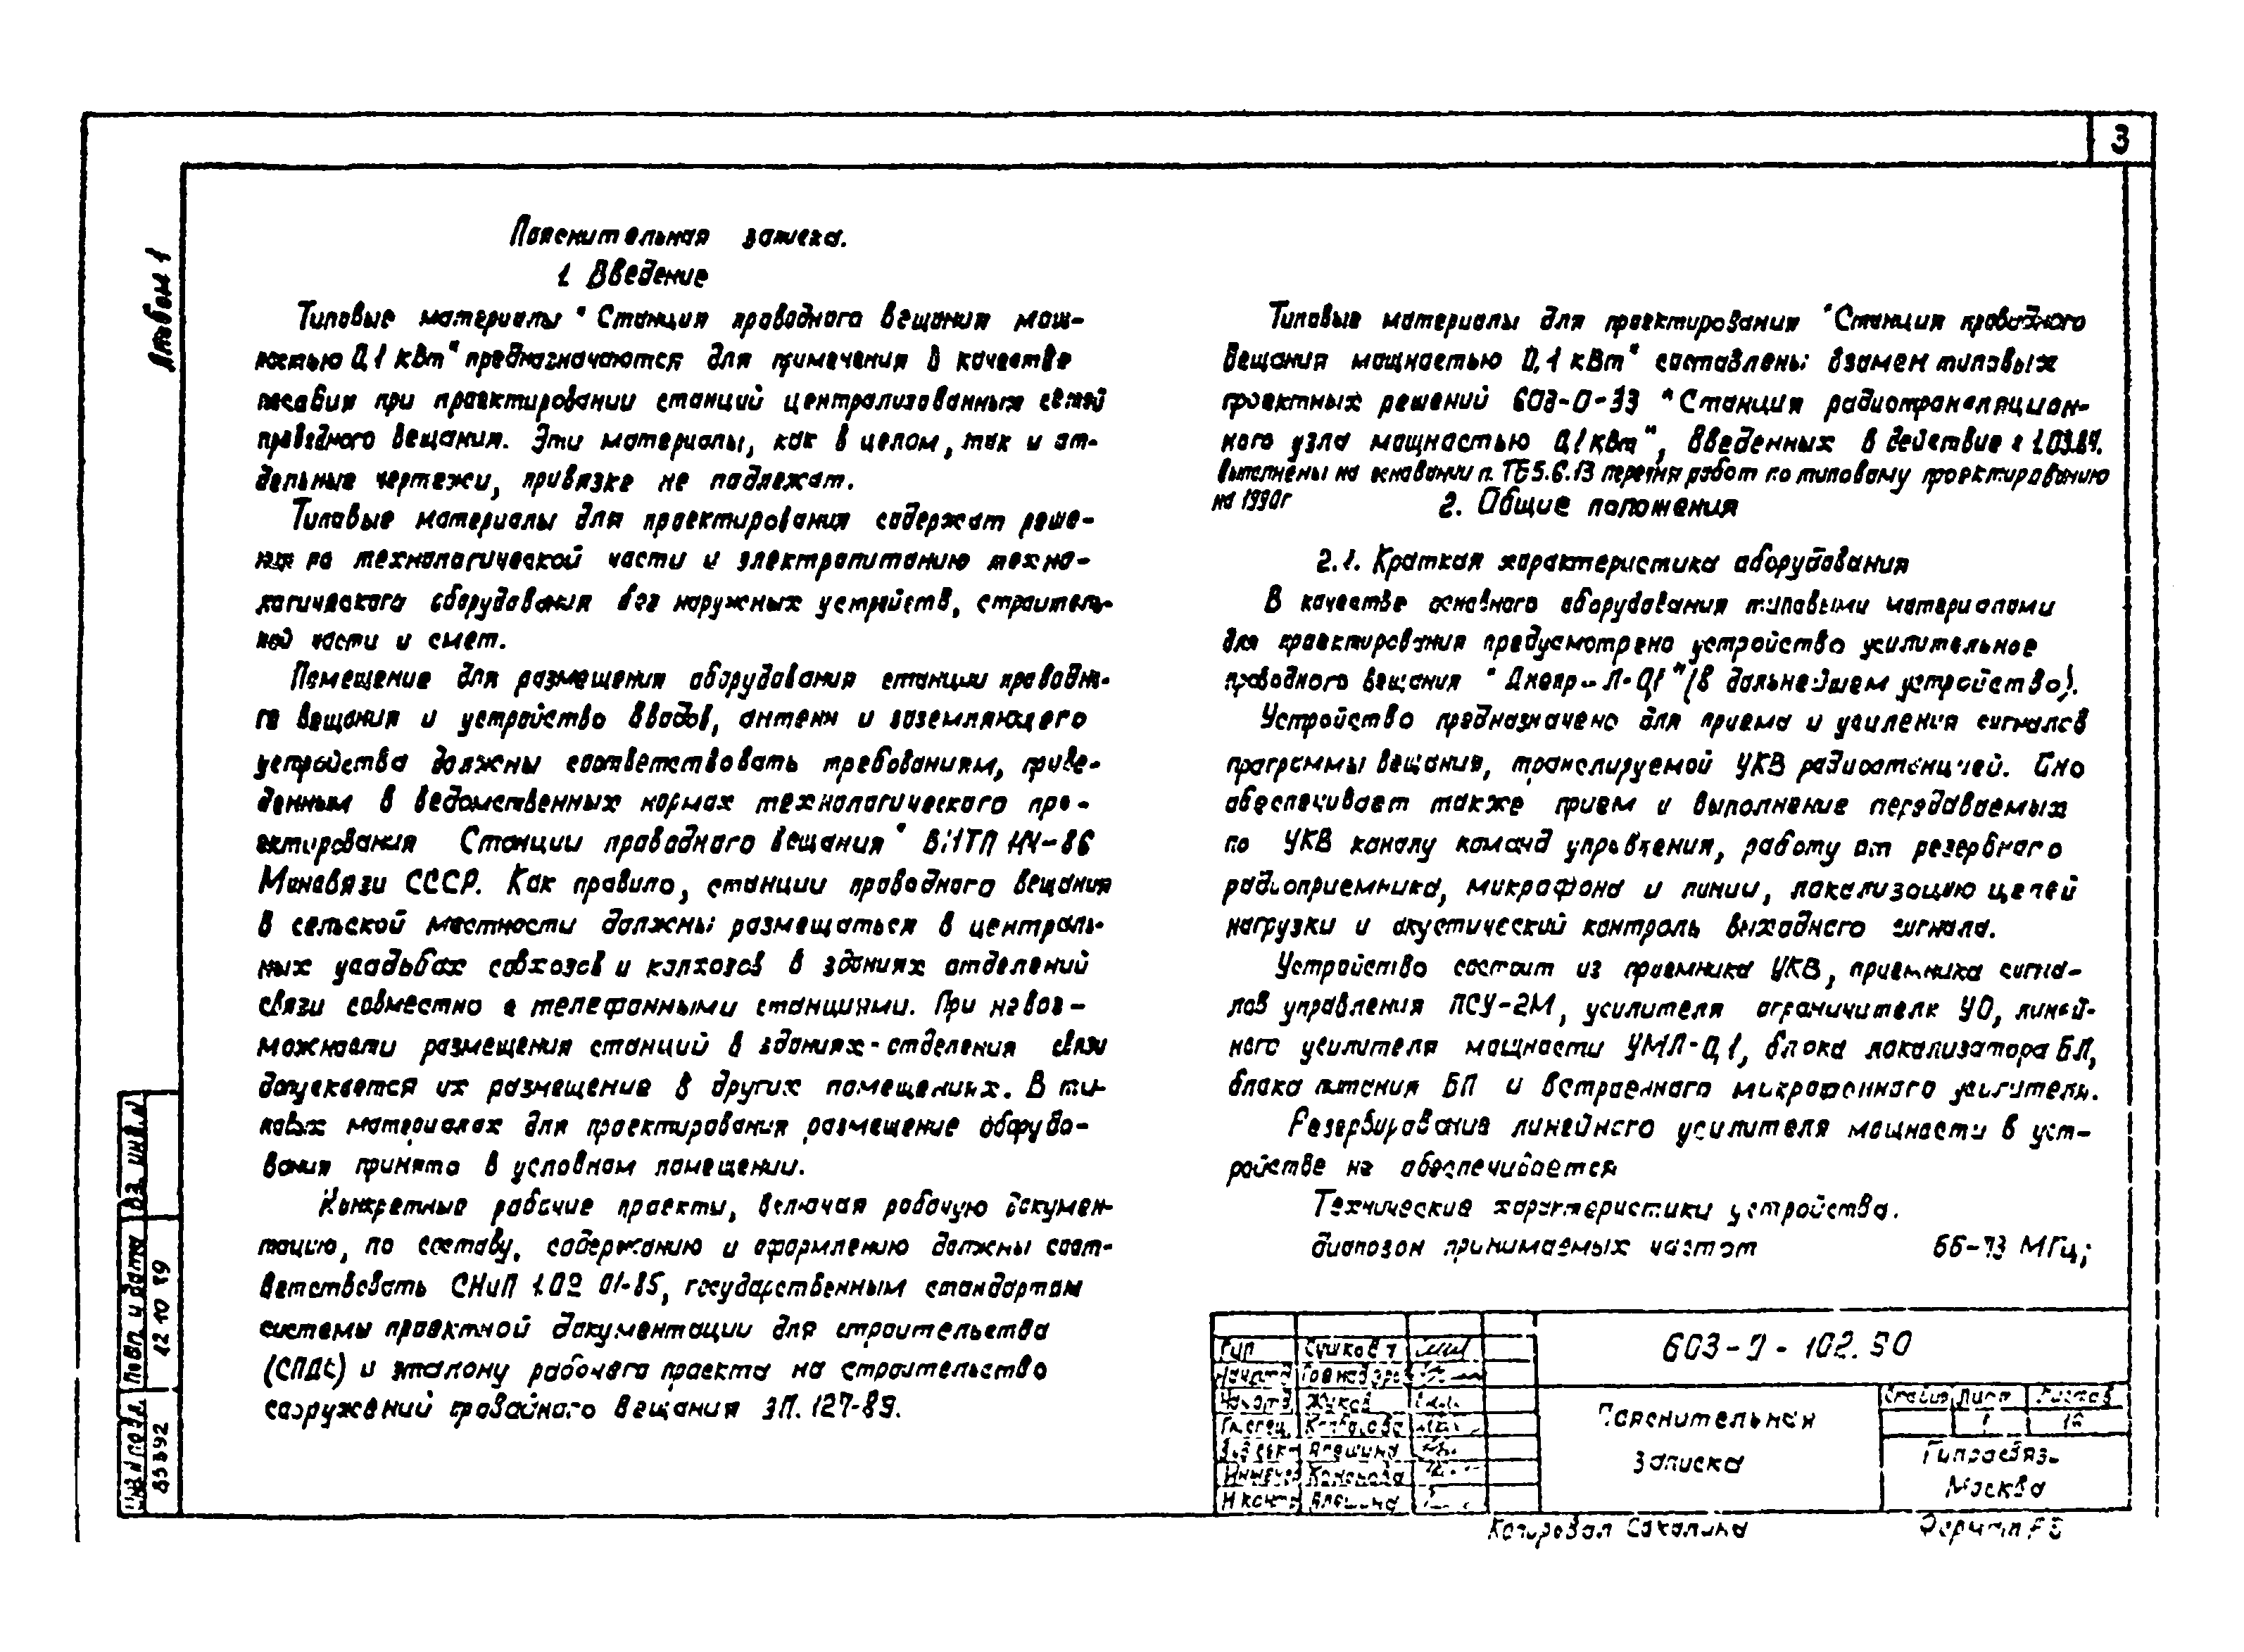 3
Альбом 1
Пояснительная записка.
1. Введение
Типовые материалы "Станция проводного вещания мощ-
ностью 0,1 кВт" предназначаются для применения в качестве
пособия при проектировании станций централизованных сетей
проводного вещания. Эти материалы, как в целом, так и от-
дельные чертежи, привязке не подлежат.
Типовые материалы для проектирования содержат реше-
ния по технологической части и электропитанию техно-
логического оборудования без наружных устройств, строитель-
ной части и смет.
Помещение для размещения оборудования станции проводно-
го вещания и устройство вводов, антенн и заземляющего
устройства должны соответствовать требованиям, приве-
денным в ведомственных нормах технологического про-
ектирования Станции проводного вещания" ВНТП
Минсвязи СССР. Как правило, станции проводного вещания
в сельской местности должны размещаться в централь-
ных усадьбах совхозов и колхозов в зданиях отделений
связи совместно с телефонными станциями. При невоз-
можности размещения станций в зданиях отделения связи
допускается их размещение в других помещениях. В ти-
повых материалах для проектирования размещение оборудо-
вания принято в условном помещении.
Конкретные рабочие проекты, включая рабочую докумен-
тацию, по составу, содержанию и оформлению должны соот-
ветствовать СНиП 1.02 01-85, государственным стандартам
системы проектной документации для строительства
(СПДС) и эталону рабочего проекта на строительство
сооружений проводного вещания ЭП. 127-89.
Типовые материалы для проектирования "Станция проводного
вещания мощностью 0,1 кВт" составлены взамен типовых
проектных решений 603-0-33 "Станция радиотрансляцион-
ного узла мощностью 0,1 кВт", введенных в действие с 1.03.84.
Выполнены на основании п. Т65.6.13 перечня работ по типовому проектированию
на 1990г
2. Общие положения
2.1. Краткая характеристика оборудования
В качестве основного оборудования типовыми материалами
для проектирования предусмотрено устройство усилительное
проводного вещания "Днепр-Л-0,1" (в дальнейшем устройство).
Устройство предназначено для приема и усиления сигналов
программы вещания, транслируемой УКВ радиостанцией. Оно
обеспечивает также прием и выполнение передаваемых
по УКВ каналу команд управления, работу от резервного
радиоприемника, микрофона и линии, локализацию цепей
нагрузки и акустический контроль выходного сигнала.
Устройство состоит из приемника УКВ, приемника сигна-
лов управления ПСУ-2М, усилителя ограничителя УО, линей-
ного усилителя мощности УМЛ-0,1, блока локализатора БЛ,
блока питания БП и встроенного микрофонного усилителя.
Резервирование линейного усилителя мощности в уст-
ройстве не обеспечивается
Технические характеристики устройства.
диапазон принимаемых частот 66-73 МГц;
603-0-102.90
Гип Сушков
Жуков
Гл.спец.
Алешина
Инженер
Н контр Алешина
Пояснительная
записка
Стадия Лист Листов
1
Гипросвязь
Москва
Копировал Сакалина
Формат
Взам. инв. №
Подп. и дата 12 10 89
Инв № подл.